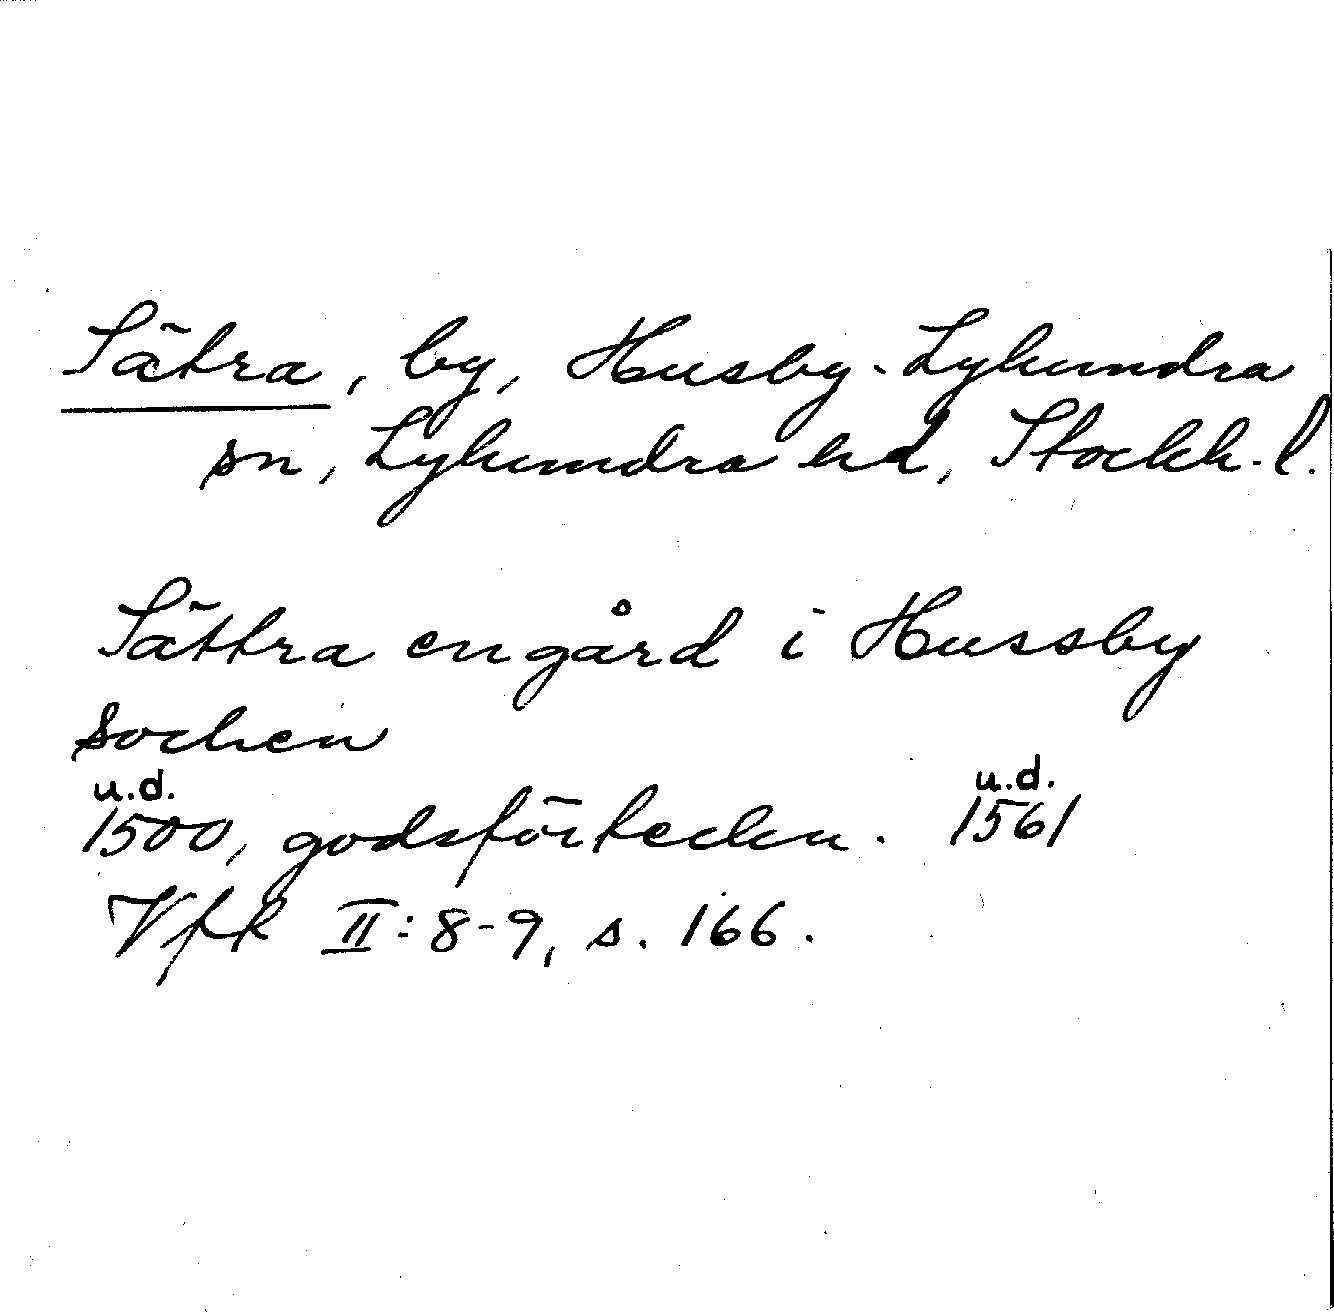 Sätra, by, Husby-Lyhundra
sn, Lyhundra hd, Stockh. l.
Sättra en gård i Hussby
sochen
u.d. u.d.
1500, godsförteckn. 1561
Vfk II:8-9, s. 166.